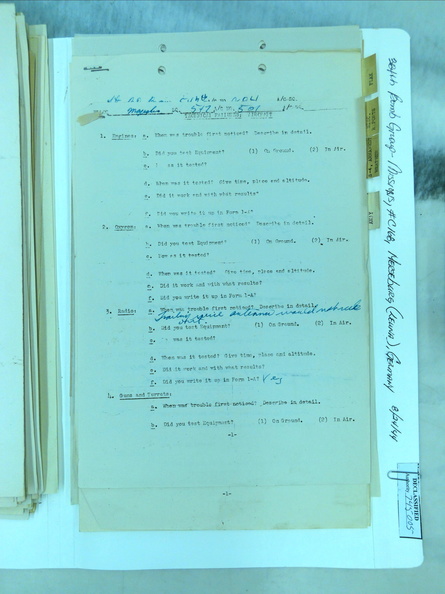 1. Engines: a. When was trouble first noticed? Describe in detail.
b. Did you test Equipment? (1) On Ground. (2) In Air.
as it tested?
d. When was it tested? Give time, place and altitude.
e. Did it work and with what results?
f. Did you write it up in Form 1-A?
2. a. When was trouble first noticed? Describe in detail.
b. Did you test Equipment? (1) On Ground. (2) In Air.
c. How was it tested?
d. When was it tested? Give time, place and altitude.
e. Did it work and with what results?
f. Did you write it up in Form 1-A?
3. Radio: a. When was trouble first noticed? Describe in detail.
Trailing wire antenna would not
b. Did you test Equipment? (1) On Ground. (2) In Air.
was it tested?
d. When was it tested? Give time, place and altitude.
e. Did it work and with what results?
f. Did you write it up in Form 1-A?
4. Guns and Turrets:
a. When was trouble first noticed? Describe in detail.
b. Did you test Equipment? (1) On Ground. (2) In Air.
-1-
-1-
384th Bomb Group- Merseburg (Leuna), Germany 8/24/44
DECLASSIFIED
745005